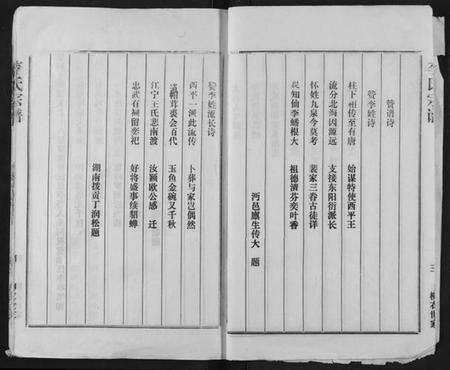 赞谱诗
赞李姓诗
柱下相传至有唐 始谋特使西平王
流分北海因源远 支接东阳衍派长
怀姓九泉今莫考 裴家三眷古徒详
须知仙李蟠根大 祖德清芬奕叶香
沔邑廪生传大 题
赞李姓流长诗
西平一派此流传 卜葬与家岂偶然
茸裘会百代 玉鱼金碗又千秋
江宁王氏悲南渡 汝颍欧公感 迁
忠武有祠留奕祀 好将盛事续貂蝉
湖南拨贡丁润松题
氏宗谱